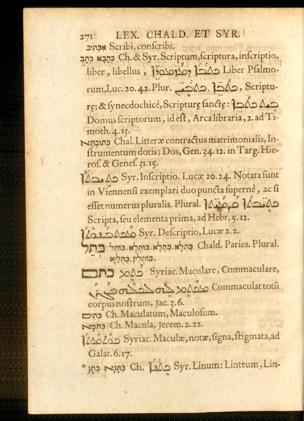 271 LEX. CHALD. ET SYR.
אכתיב Scribi, conscribi.
כתבא כתב Ch. & Syr. Scriptum, scriptura, inscriptio,
liber, libellus, Liber Psalmo-
rum, Luc. 20. 42. Plur. Scriptu-
ræ; & synecdochicè, Scripturę sanctę:
Domus scriptorum, id est, Arca libraria, 2. ad Ti-
moth. 4. 13.
Chal. Litteræ contractus matrimonialis, In-
strumentum dotis; Dos, Gen. 34. 12. in Targ. Hie-
ros. & Genes. 31. 15.
Syr. Inscriptio. Lucæ 20. 24. Notata sunt
in Viennensi exemplari duo puncta supernè, ac si
esset numeri pluralis. Plural.
Scripta, seu elementa prima, ad Hebr. 5. 12.
Syr. Descriptio, Lucæ 2. 2.
כתל Chald. Paries. Plural.
כתם Syriac. Maculare, Commaculare,
Commaculat totū
corpus nostrum, Jac. 3. 6.
כתים Ch. Maculatum, Maculosum.
כתמא Ch. Macula, Jerem. 2. 22.
Syriac. Maculæ, notæ, signa, stigmata, ad
Galat. 6. 17.
* כתן כתנא Ch. Syr. Linum: Linteum, Lin-